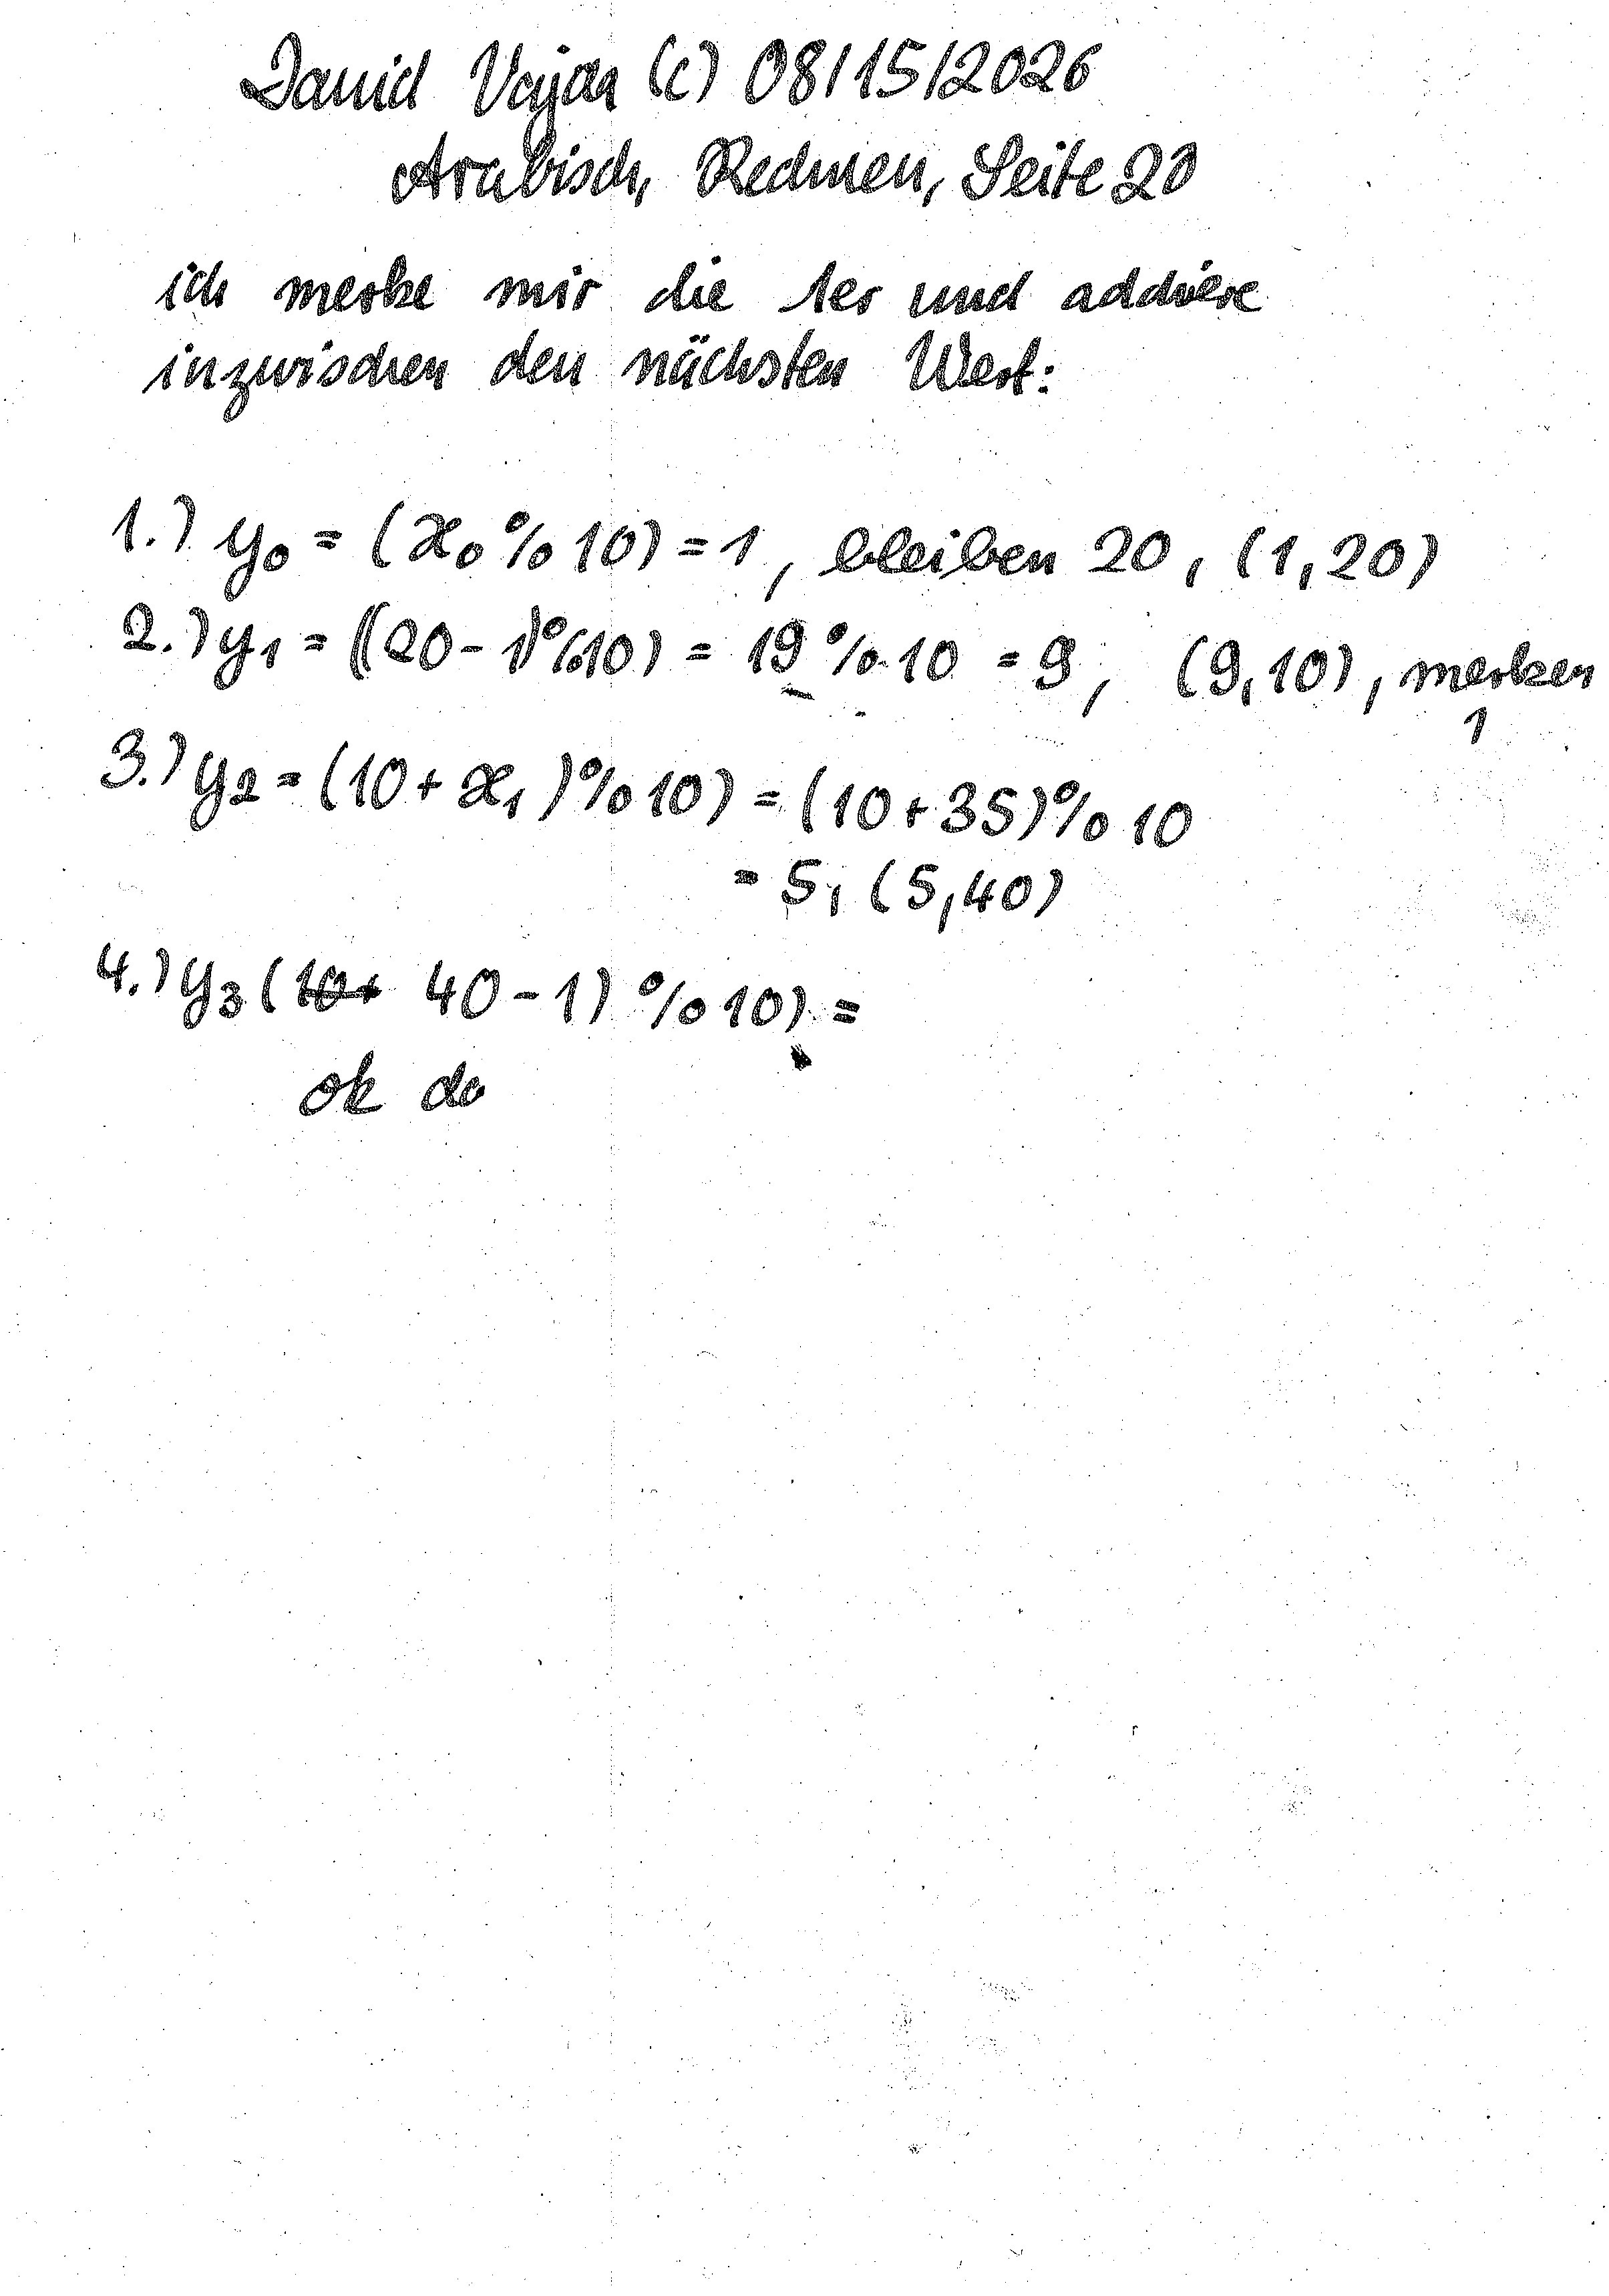 David Vajda (c) 08/15/2026
Arabisch, Rechnen, Seite 20
ich merke mir die 1er und addiere
inzwischen den nächsten Wert:
1.) y₀ = (x₀ % 10) = 1, bleiben 20, (1,20)
2.) y₁ = ((20 - 1)%10) = 19 % 10 = 9, (9,10), merken
1
3.) y₂ = (10 + x₁)%10) = (10 + 35)%10
= 5, (5,40)
4.) y₃ (10+ 40 - 1) %10) =
ok do